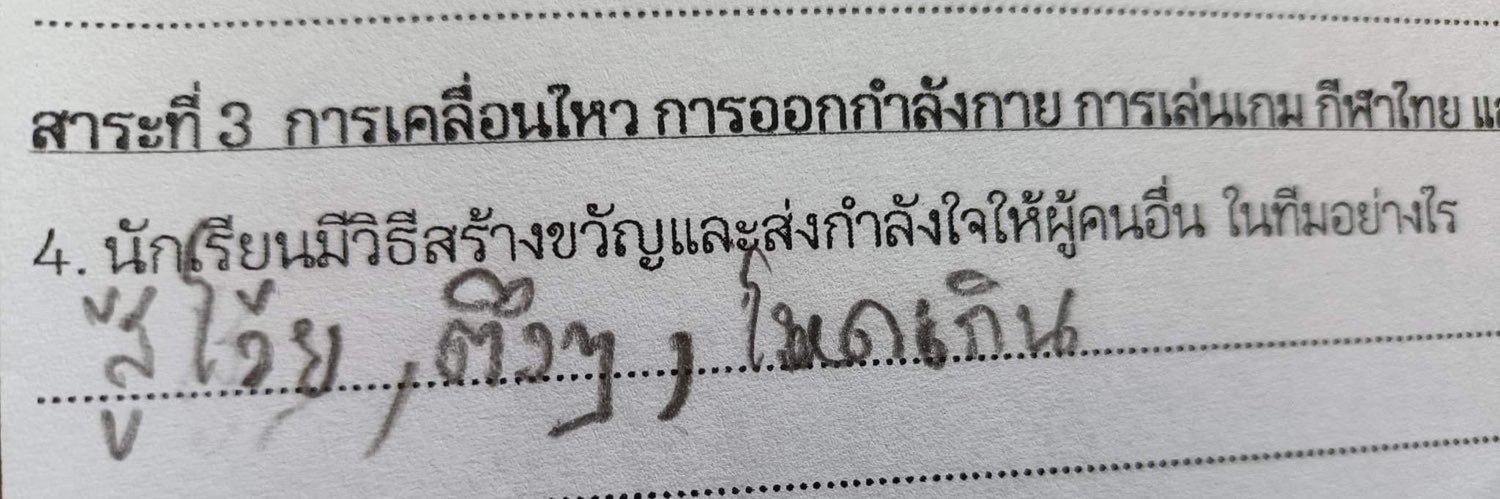 สาระที่ 3 การเคลื่อนไหว การออกกำลังกาย การเล่นเกม กีฬาไทย
4. นักเรียนมีวิธีสร้างขวัญและส่งกำลังใจให้ผู้คนอื่น ในทีมอย่างไร
สู้โว้ย , ตึงๆ , โหดเกิน